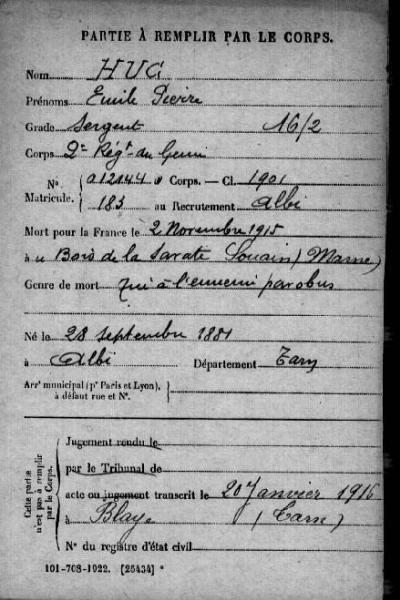 PARTIE À REMPLIR PAR LE CORPS.
Nom HUG
Prénoms Emile Pierre
Grade Sergent 16/2
Corps 2e Régt du Génie
No 012144 Corps. — Cl. 1901
Matricule. 183 au Recrutement Albi
Mort pour la France le 2 Novembre 1915
à Bois de la Savate Souain (Marne)
Genre de mort Tué à l'ennemi par obus
Né le 28 septembre 1881
à Albi Département Tarn
Arrt municipal (pr Paris et Lyon), à défaut rue et No.
Cette partie n'est pas à remplir par le Corps.
Jugement rendu le
par le Tribunal de
acte ou jugement transcrit le 20 Janvier 1916
à Blaye (Tarn)
No du registre d'état civil
101-708-1922. [26434]